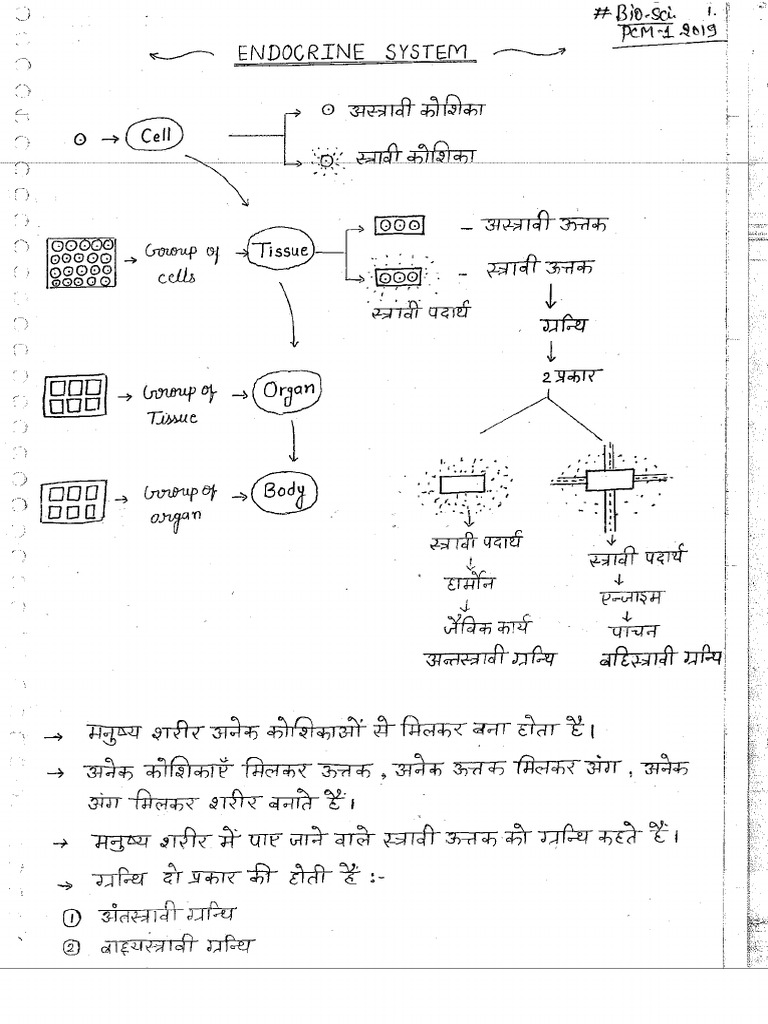 # Bio-Sci. 1.
PCM-1 2019
ENDOCRINE SYSTEM
Cell
अस्त्रावी कोशिका
स्त्रावी कोशिका
Group of cells
Tissue
अस्त्रावी ऊत्तक
स्त्रावी ऊत्तक
स्त्रावी पदार्थ
ग्रन्थि
2 प्रकार
Group of Tissue
Organ
Group of organ
Body
स्त्रावी पदार्थ
हार्मोन
जैविक कार्य
अन्तस्त्रावी ग्रन्थि
स्त्रावी पदार्थ
एन्जाइम
पाचन
बहिस्त्रावी ग्रन्थि
→ मनुष्य शरीर अनेक कोशिकाओं से मिलकर बना होता है।
→ अनेक कोशिकाएँ मिलकर ऊत्तक , अनेक ऊत्तक मिलकर अंग , अनेक
अंग मिलकर शरीर बनाते हैं।
→ मनुष्य शरीर में पाए जाने वाले स्त्रावी ऊत्तक को ग्रन्थि कहते हैं।
→ ग्रन्थि दो प्रकार की होती है :-
① अंतस्त्रावी ग्रन्थि
② बाह्यस्त्रावी ग्रन्थि